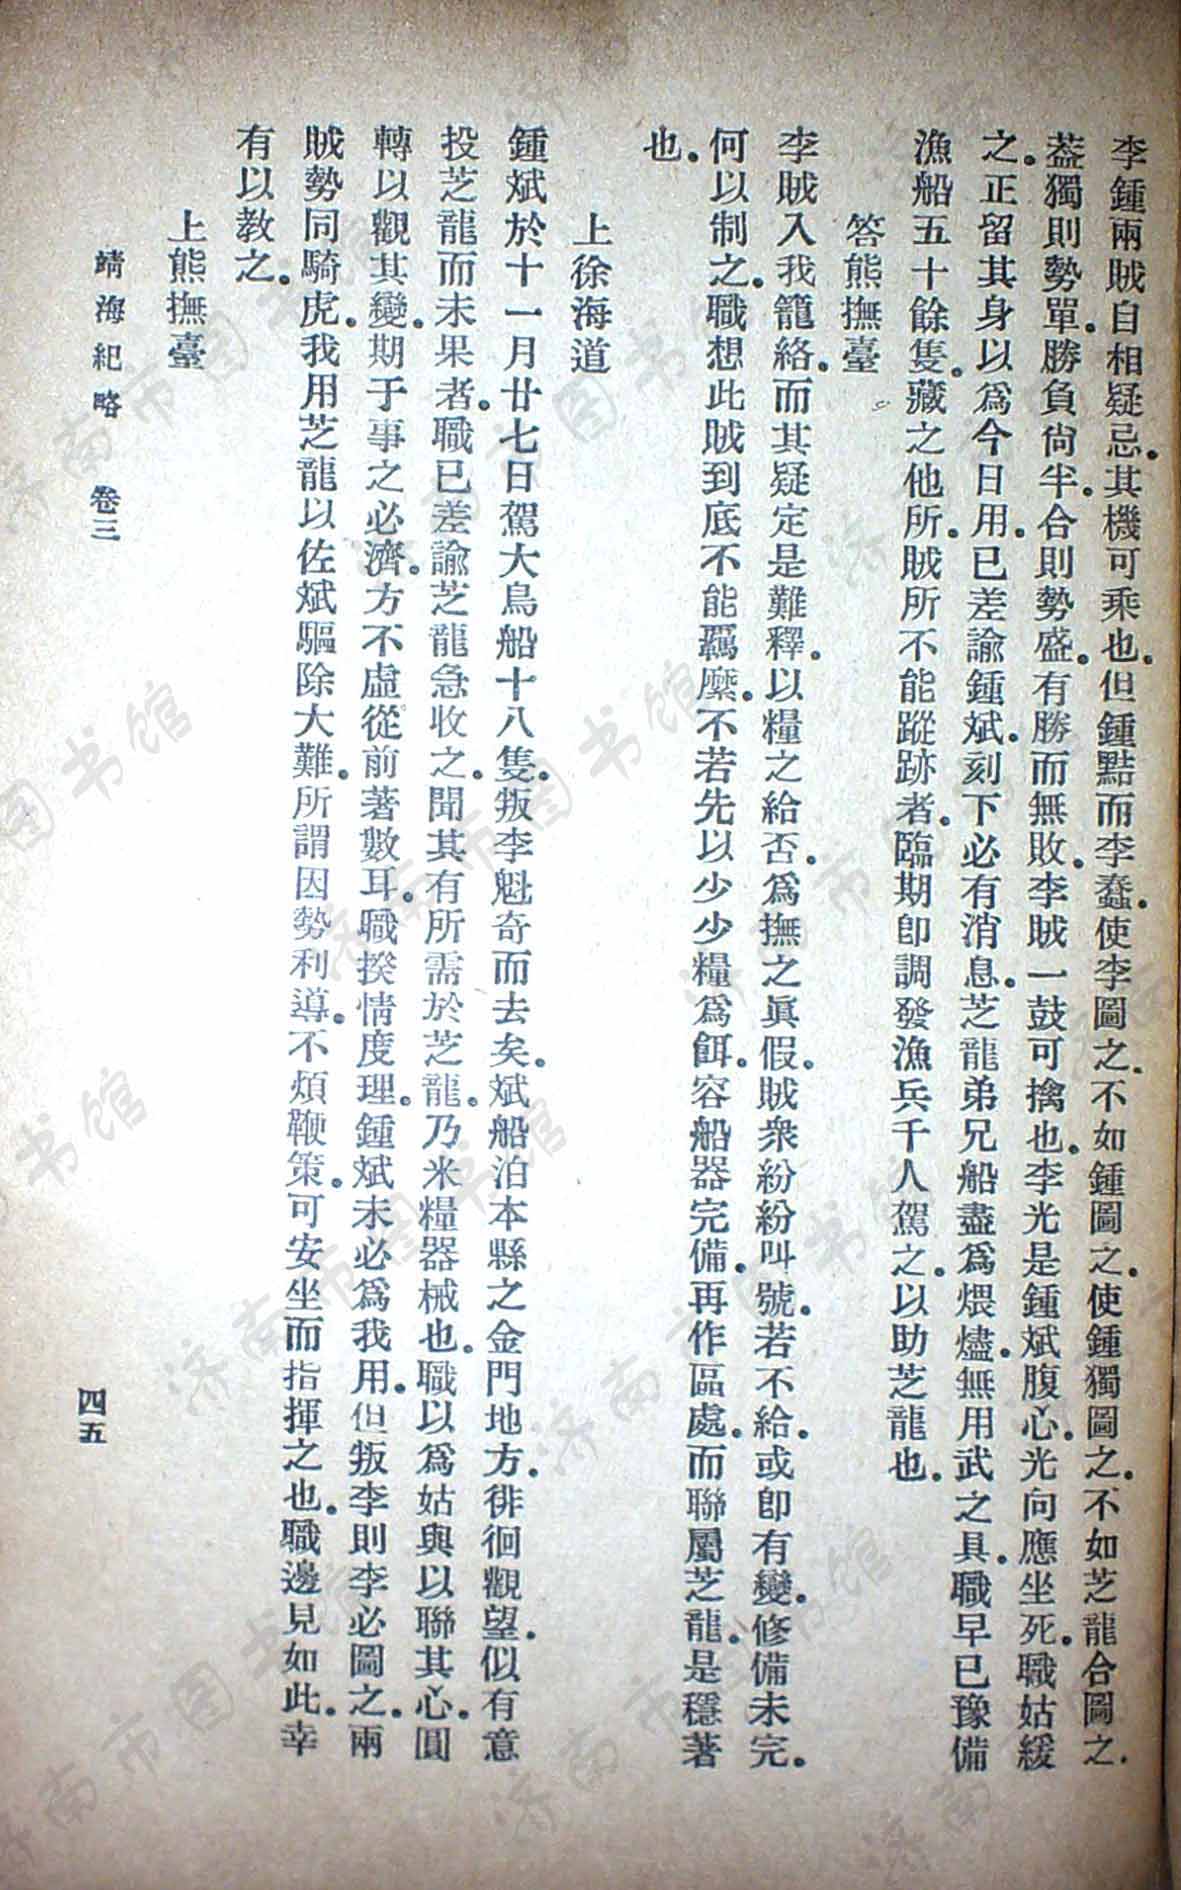 李鍾兩賊自相疑忌。其機可乘也。但鍾黠而李蠢。使李圖之。不如鍾圖之。使鍾獨圖之。不如芝龍合圖之。
葢獨則勢單。勝負尙半。合則勢盛。有勝而無敗。李賊一鼓可擒也。李光是鍾斌腹心。光向應坐死。職姑緩
之。正留其身以爲今日用。已差諭鍾斌。刻下必有消息。芝龍弟兄船盡爲煨燼。無用武之具。職早已豫備
漁船五十餘隻。藏之他所。賊所不能蹤跡者。臨期卽調發漁兵千人駕之。以助芝龍也。
答熊撫臺
李賊入我籠絡。而其疑定是難釋。以糧之給否。爲撫之眞假。賊衆紛紛叫號。若不給。或卽有變。修備未完。
何以制之。職想此賊到底不能羈縻。不若先以少少糧爲餌。容船器完備。再作區處。而聯屬芝龍。是穩著
也。
上徐海道
鍾斌於十一月廿七日駕大鳥船十八隻。叛李魁奇而去矣。斌船泊本縣之金門地方。徘徊觀望。似有意
投芝龍而未果者。職已差諭芝龍急收之。聞其有所需於芝龍。乃米糧器械也。職以爲姑與以聯其心。圓
轉以觀其變。期于事之必濟。方不虛從前著數耳。職揆情度理。鍾斌未必爲我用。但叛李則李必圖之。兩
賊勢同騎虎。我用芝龍以佐斌驅除大難。所謂因勢利導。不煩鞭策。可安坐而指揮之也。職邊見如此。幸
有以教之。
上熊撫臺
靖海紀略 卷三
四五
济南市图书馆